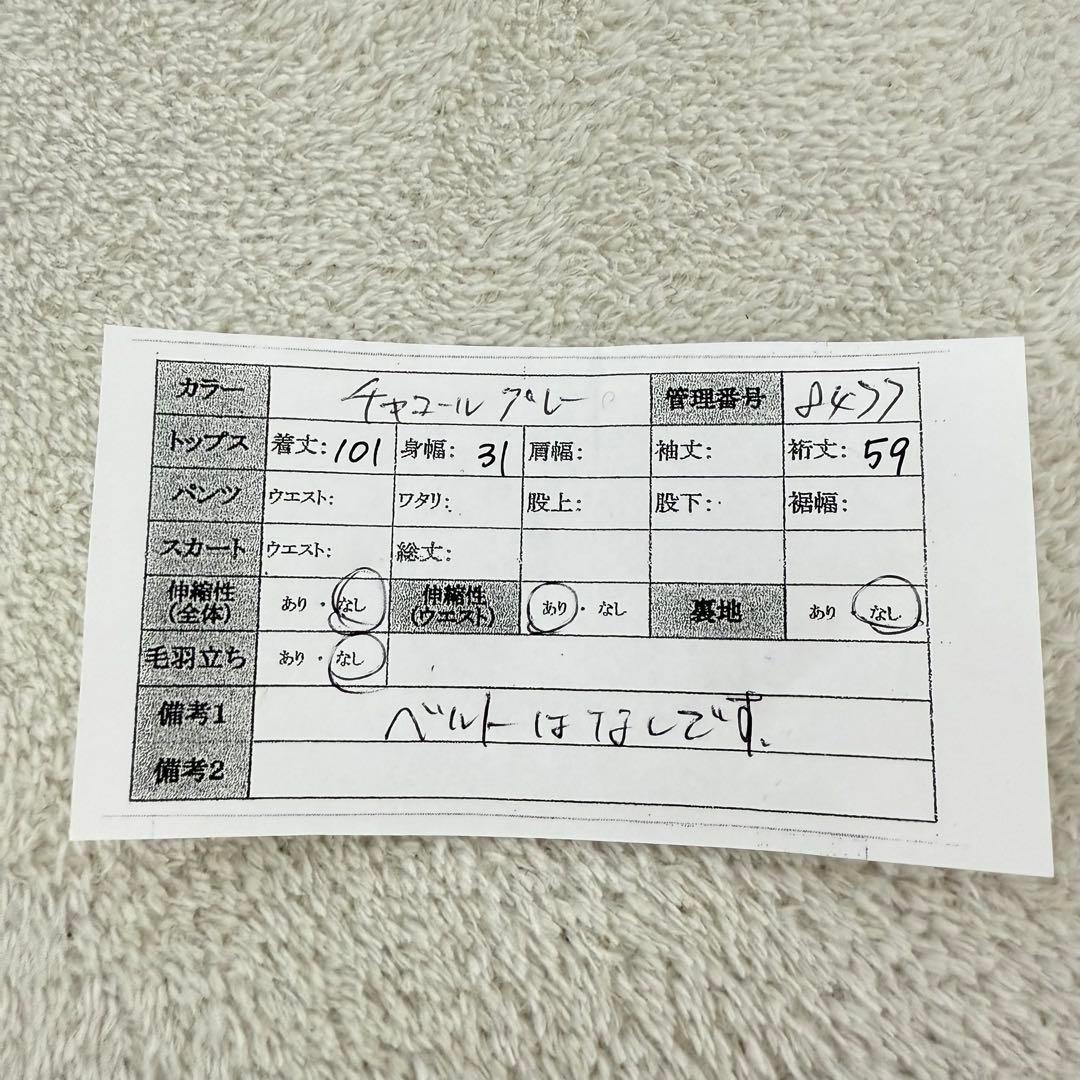 カラー チャコールグレー 管理番号 8477
トップス 着丈: 101 身幅: 31 肩幅: 袖丈: 裄丈: 59
パンツ ウエスト: ワタリ: 股上: 股下: 裾幅:
スカート ウエスト: 総丈:
伸縮性(全体) あり・なし 伸縮性(ウエスト) あり・なし 裏地 あり なし
毛羽立ち あり・なし
備考1 ベルトはなしです。
備考2